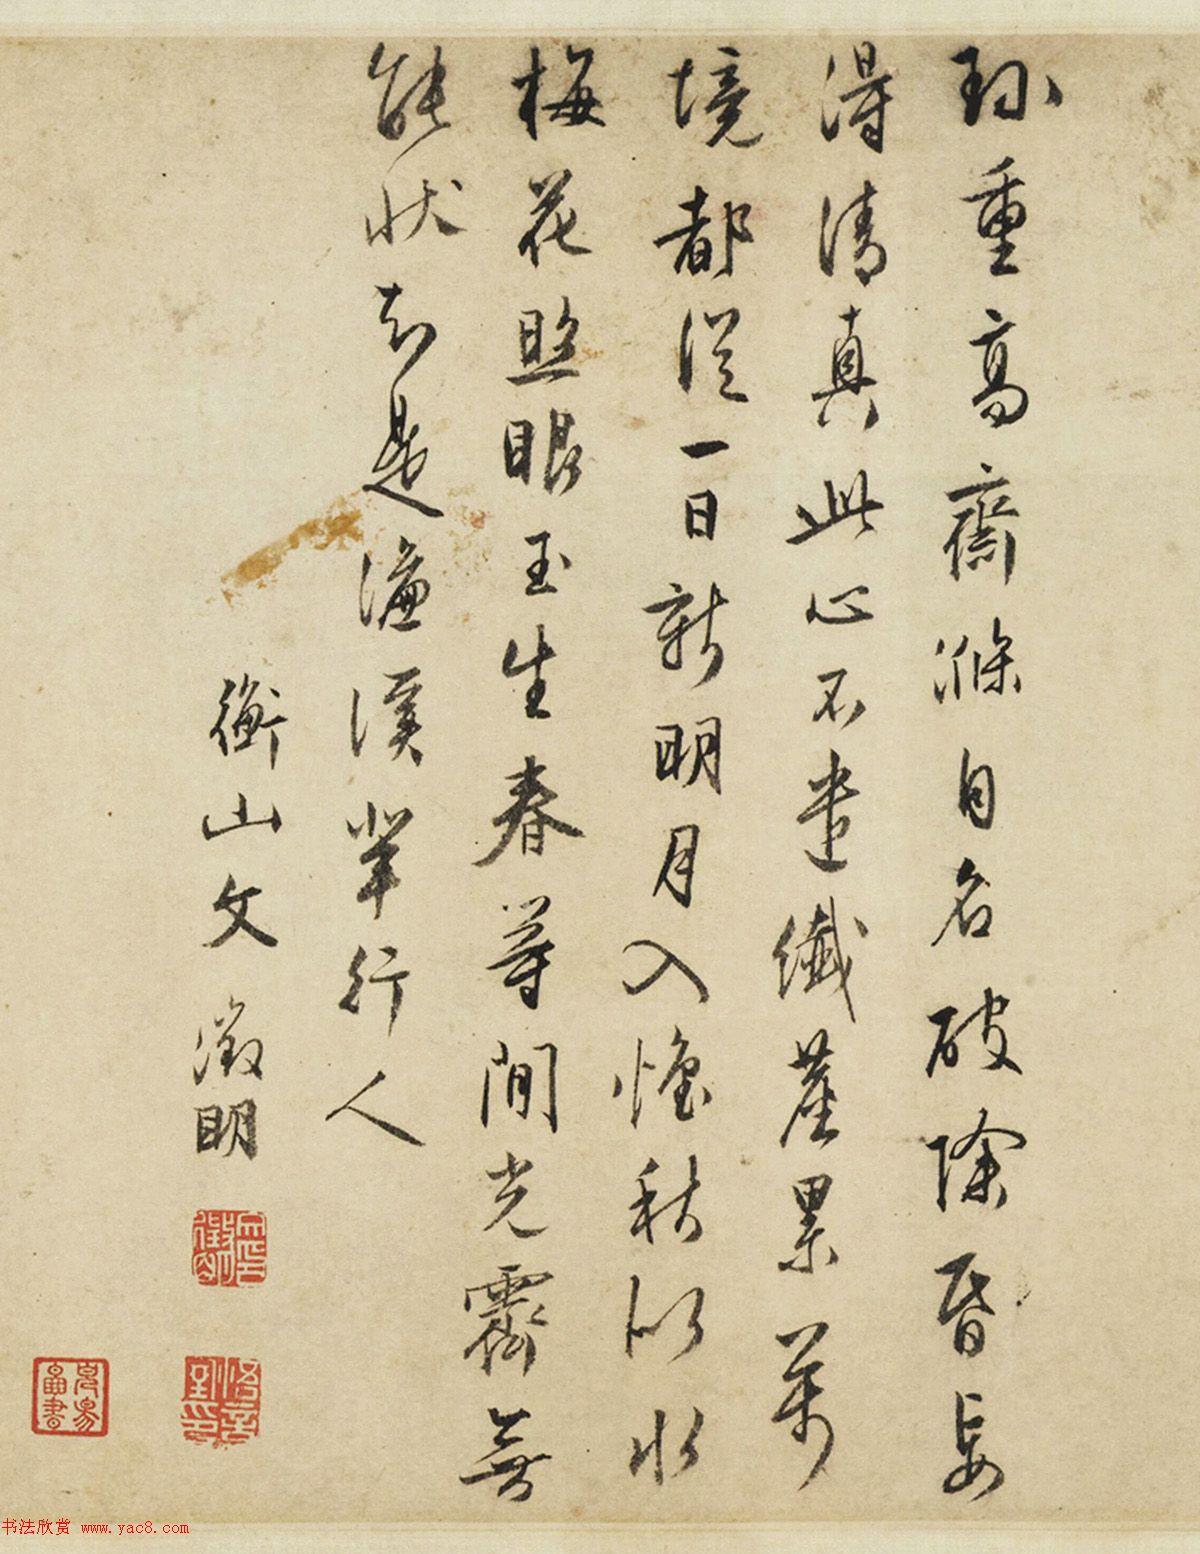 珎重高齋滌自名破除昏妄
得清真此心不遣纖塵累萬
境都從一日新明月入懷秋似水
梅花照眼玉生春等閒光霽無
能狀知是濂溪輩行人
衡山文徵明
书法欣赏 www.yac8.com